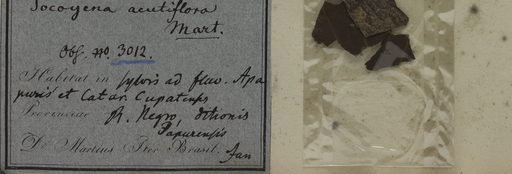 Tocoyena acutiflora
Mart.
Obs. no. 3012.
Habitat in sylvis ad fluv. Apa
puris et Catar. Cupatensis
Provinciae R. Negro, ditionis
Japurensis
Dr. Martius Iter Brasil. Jan